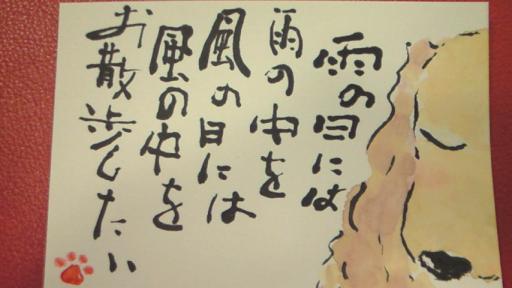 雨の日には
雨の中を
風の日には
風の中を
お散歩したい